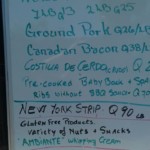 2LB Q13 2LB Q25
Ground Pork Q26/LB
Canadian Bacon Q38/LB
COSTILLA DE CERDO
Pre-cooked Baby Back + Spare
Ribs without BBQ Sauce
NEW YORK STRIP Q 90 LB
Gluten Free Products
Variety of Nuts + Snacks
"AMBIANTE" Whipping Cream